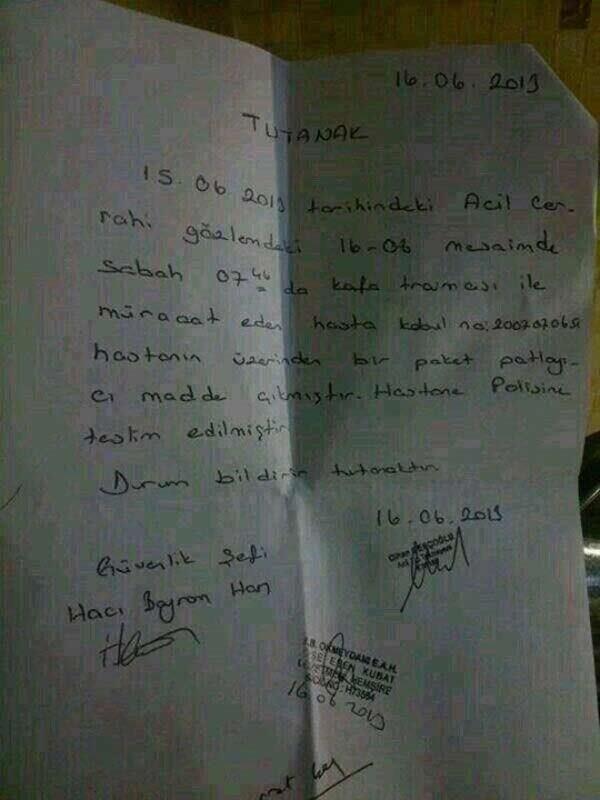 16.06.2013
TUTANAK
15.06 2013 tarihindeki Acil Cer-
rahi gözlemdeki 16-08 mesaimde
Sabah 07 46 da kafa travması ile
müracaat eden hasta kabul no:
hastanın üzerinden bir paket patlayı-
cı madde çıkmıştır. Hastane Polisine
teslim edilmiştir
Durum bildirir tutanaktır
16.06.2013
Güvenlik Şefi
Hacı Bayram Han
S.B. OKMEYDANI E.A.H.
EREN KUBAT
HEMŞİRE
16 06 2013